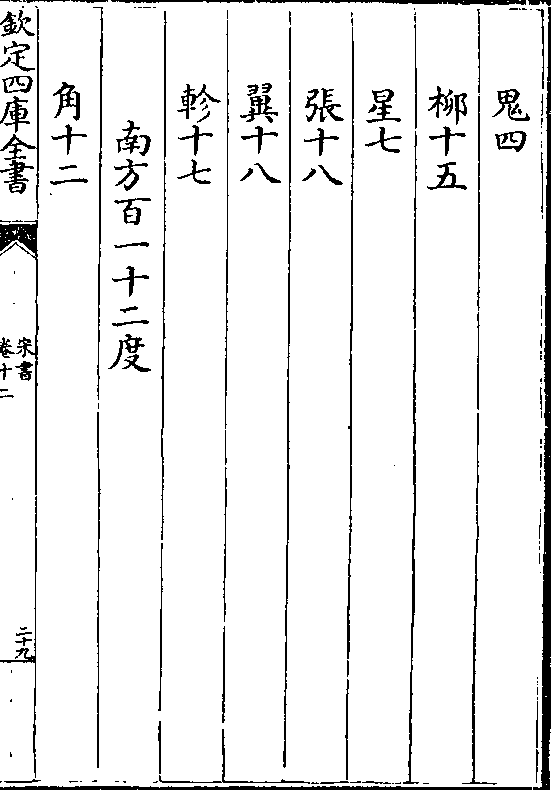 鬼四
柳十五
星七
張十八
翼十八
軫十七
南方百一十二度
角十二
欽定四庫全書
宋書
卷十二
二十九